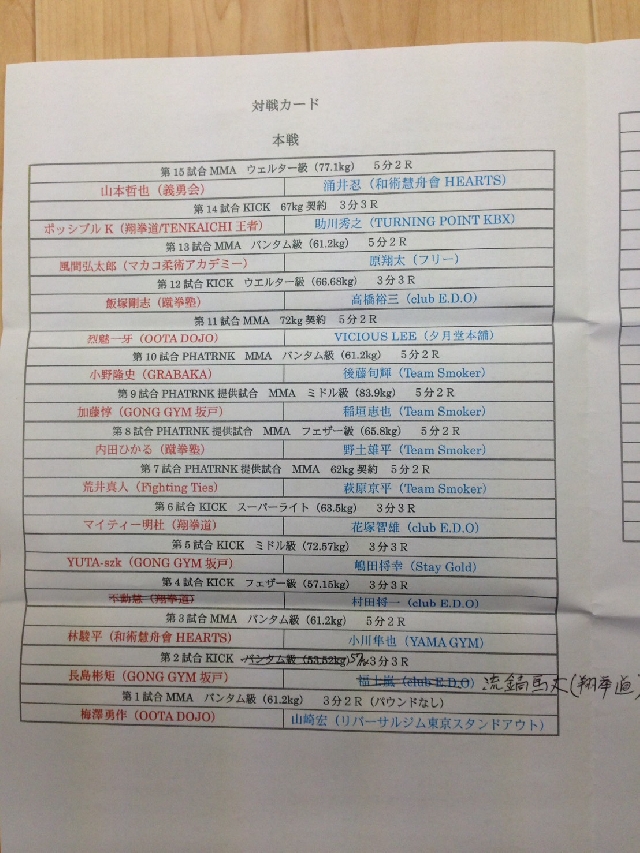 対戦カード
本戦
第15試合MMA ウェルター級（77.1kg） 5分2R
山本哲也（義勇会） 涌井忍（和術慧舟會HEARTS）
第14試合KICK 67kg契約 3分3R
ポッシブルK（翔拳道/TENKAICHI王者） 助川秀之（TURNING POINT KBX）
第13試合MMA バンタム級（61.2kg） 5分2R
風間弘太郎（マカコ柔術アカデミー） 原翔太（フリー）
第12試合KICK ウエルター級（66.68kg） 3分3R
飯塚剛志（蹴拳塾） 高橋裕三（club E.D.O）
第11試合MMA 72kg契約 5分2R
烈魅一牙（OOTA DOJO） VICIOUS LEE（夕月堂本舗）
第10試合PHATRNK MMA バンタム級（61.2kg） 5分2R
小野隆史（GRABAKA） 後藤旬輝（Team Smoker）
第9試合PHATRNK提供試合 MMA ミドル級（83.9kg） 5分2R
加藤惇（GONG GYM坂戸） 稲垣恵也（Team Smoker）
第8試合PHATRNK提供試合 MMA フェザー級（65.8kg） 5分2R
内田ひかる（蹴拳塾） 野土雄平（Team Smoker）
第7試合PHATRNK提供試合 MMA 62kg契約 5分2R
荒井真人（Fighting Ties） 萩原京平（Team Smoker）
第6試合KICK スーパーライト（63.5kg） 3分3R
マイティー明杜（翔拳道） 花塚智雄（club E.D.O）
第5試合KICK ミドル級（72.57kg） 3分3R
YUTA-szk（GONG GYM坂戸） 嶋田将幸（Stay Gold）
第4試合KICK フェザー級（57.15kg） 3分3R
不動慧（翔拳道） 村田将一（club E.D.O）
第3試合MMA バンタム級（61.2kg） 5分2R
林駿平（和術慧舟會HEARTS） 小川隼也（YAMA GYM）
第2試合KICK バンタム級（53.52kg） 3分3R
長島彬矩（GONG GYM坂戸） （club E.D.O） 流鏑馬丈（翔拳道）
第1試合MMA バンタム級（61.2kg） 3分2R（パウンドなし）
梅澤勇作（OOTA DOJO） 山崎宏（リバーサルジム東京スタンドアウト）